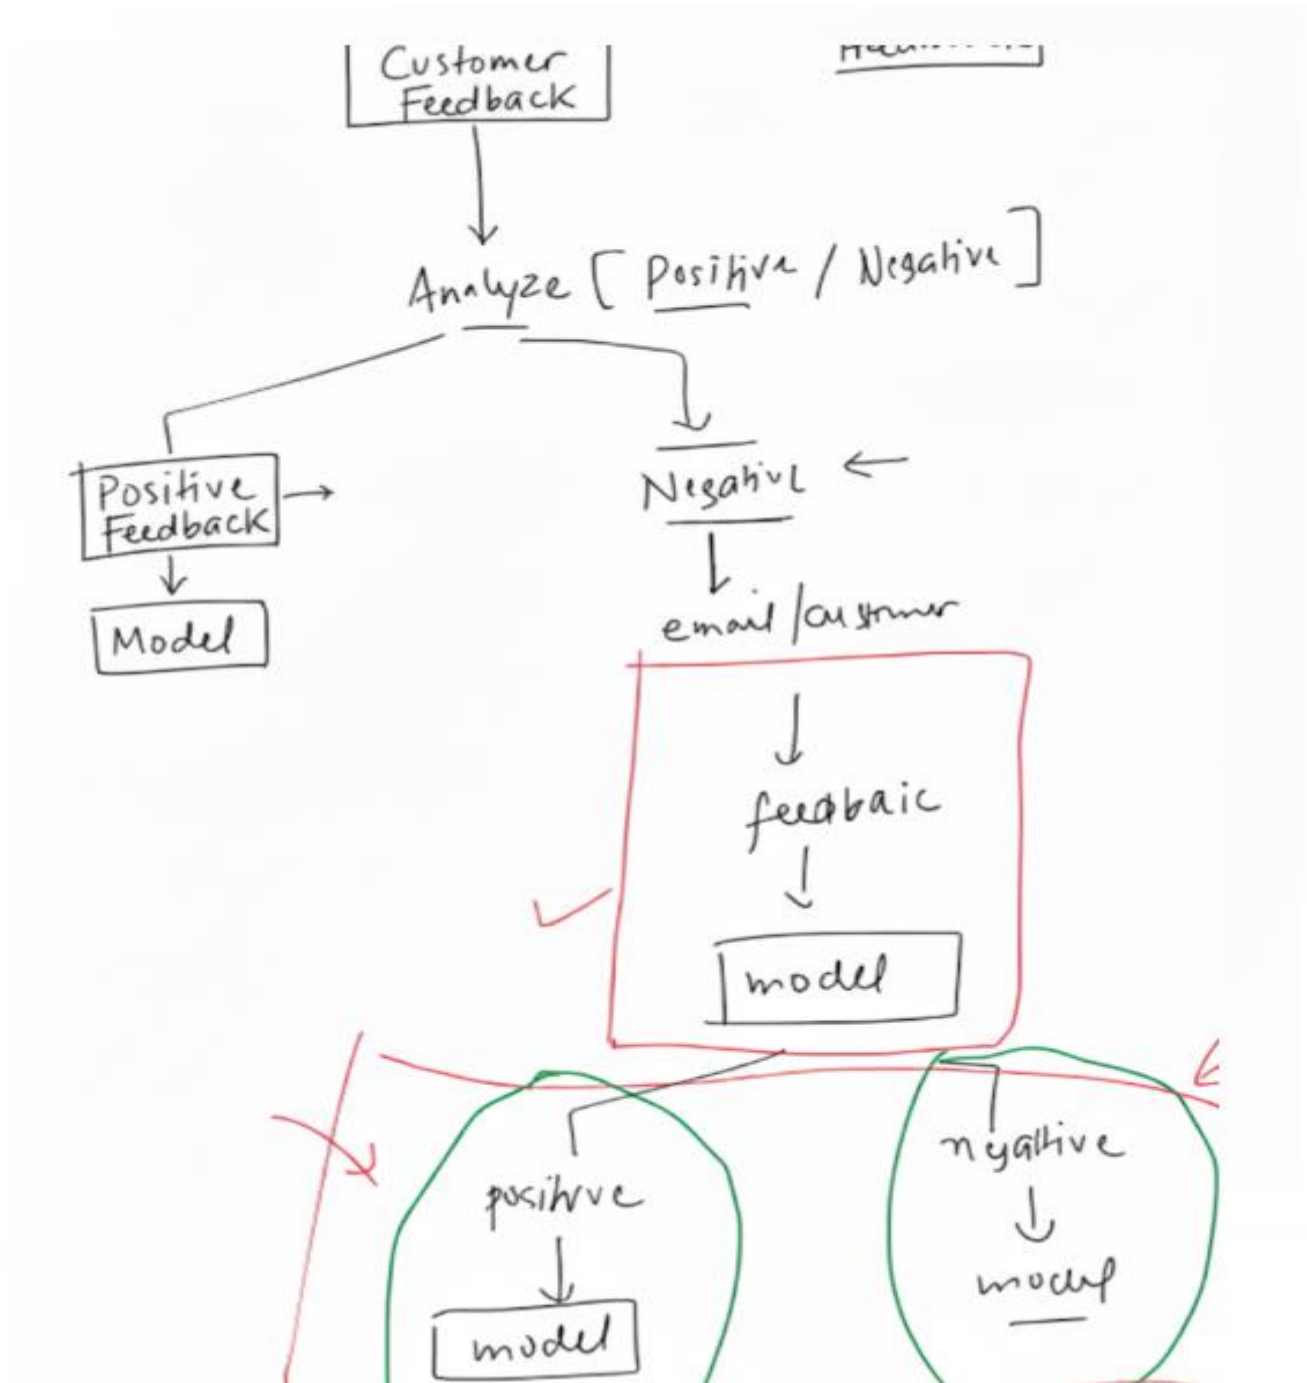 Customer
Feedback
Analyze [Positive / Negative]
Positive
Feedback
Negative
Model
email/customer
feedbaic
model
positive
negative
model
model